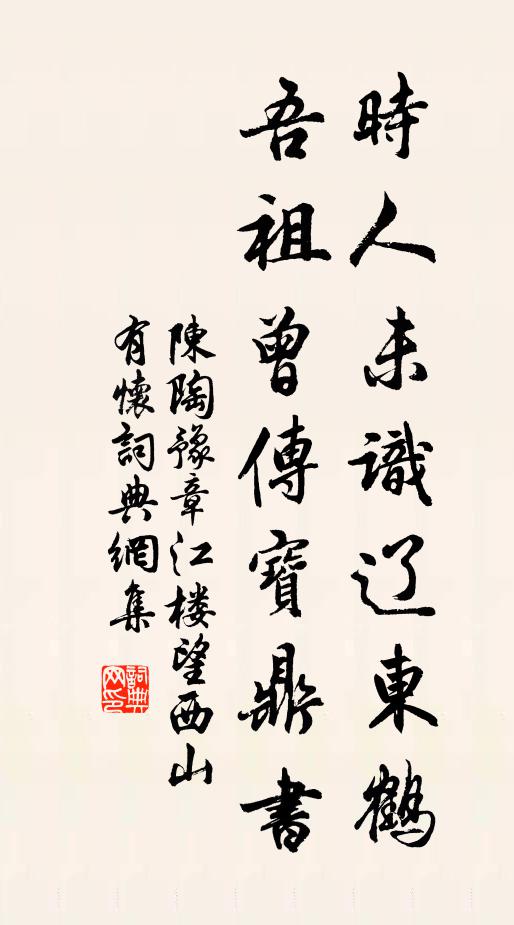 時人未識辽東鶴
吾祖曾傳寶鼎書
陳陶豫章江楼望西山
有懷詞典網集
詞典网印